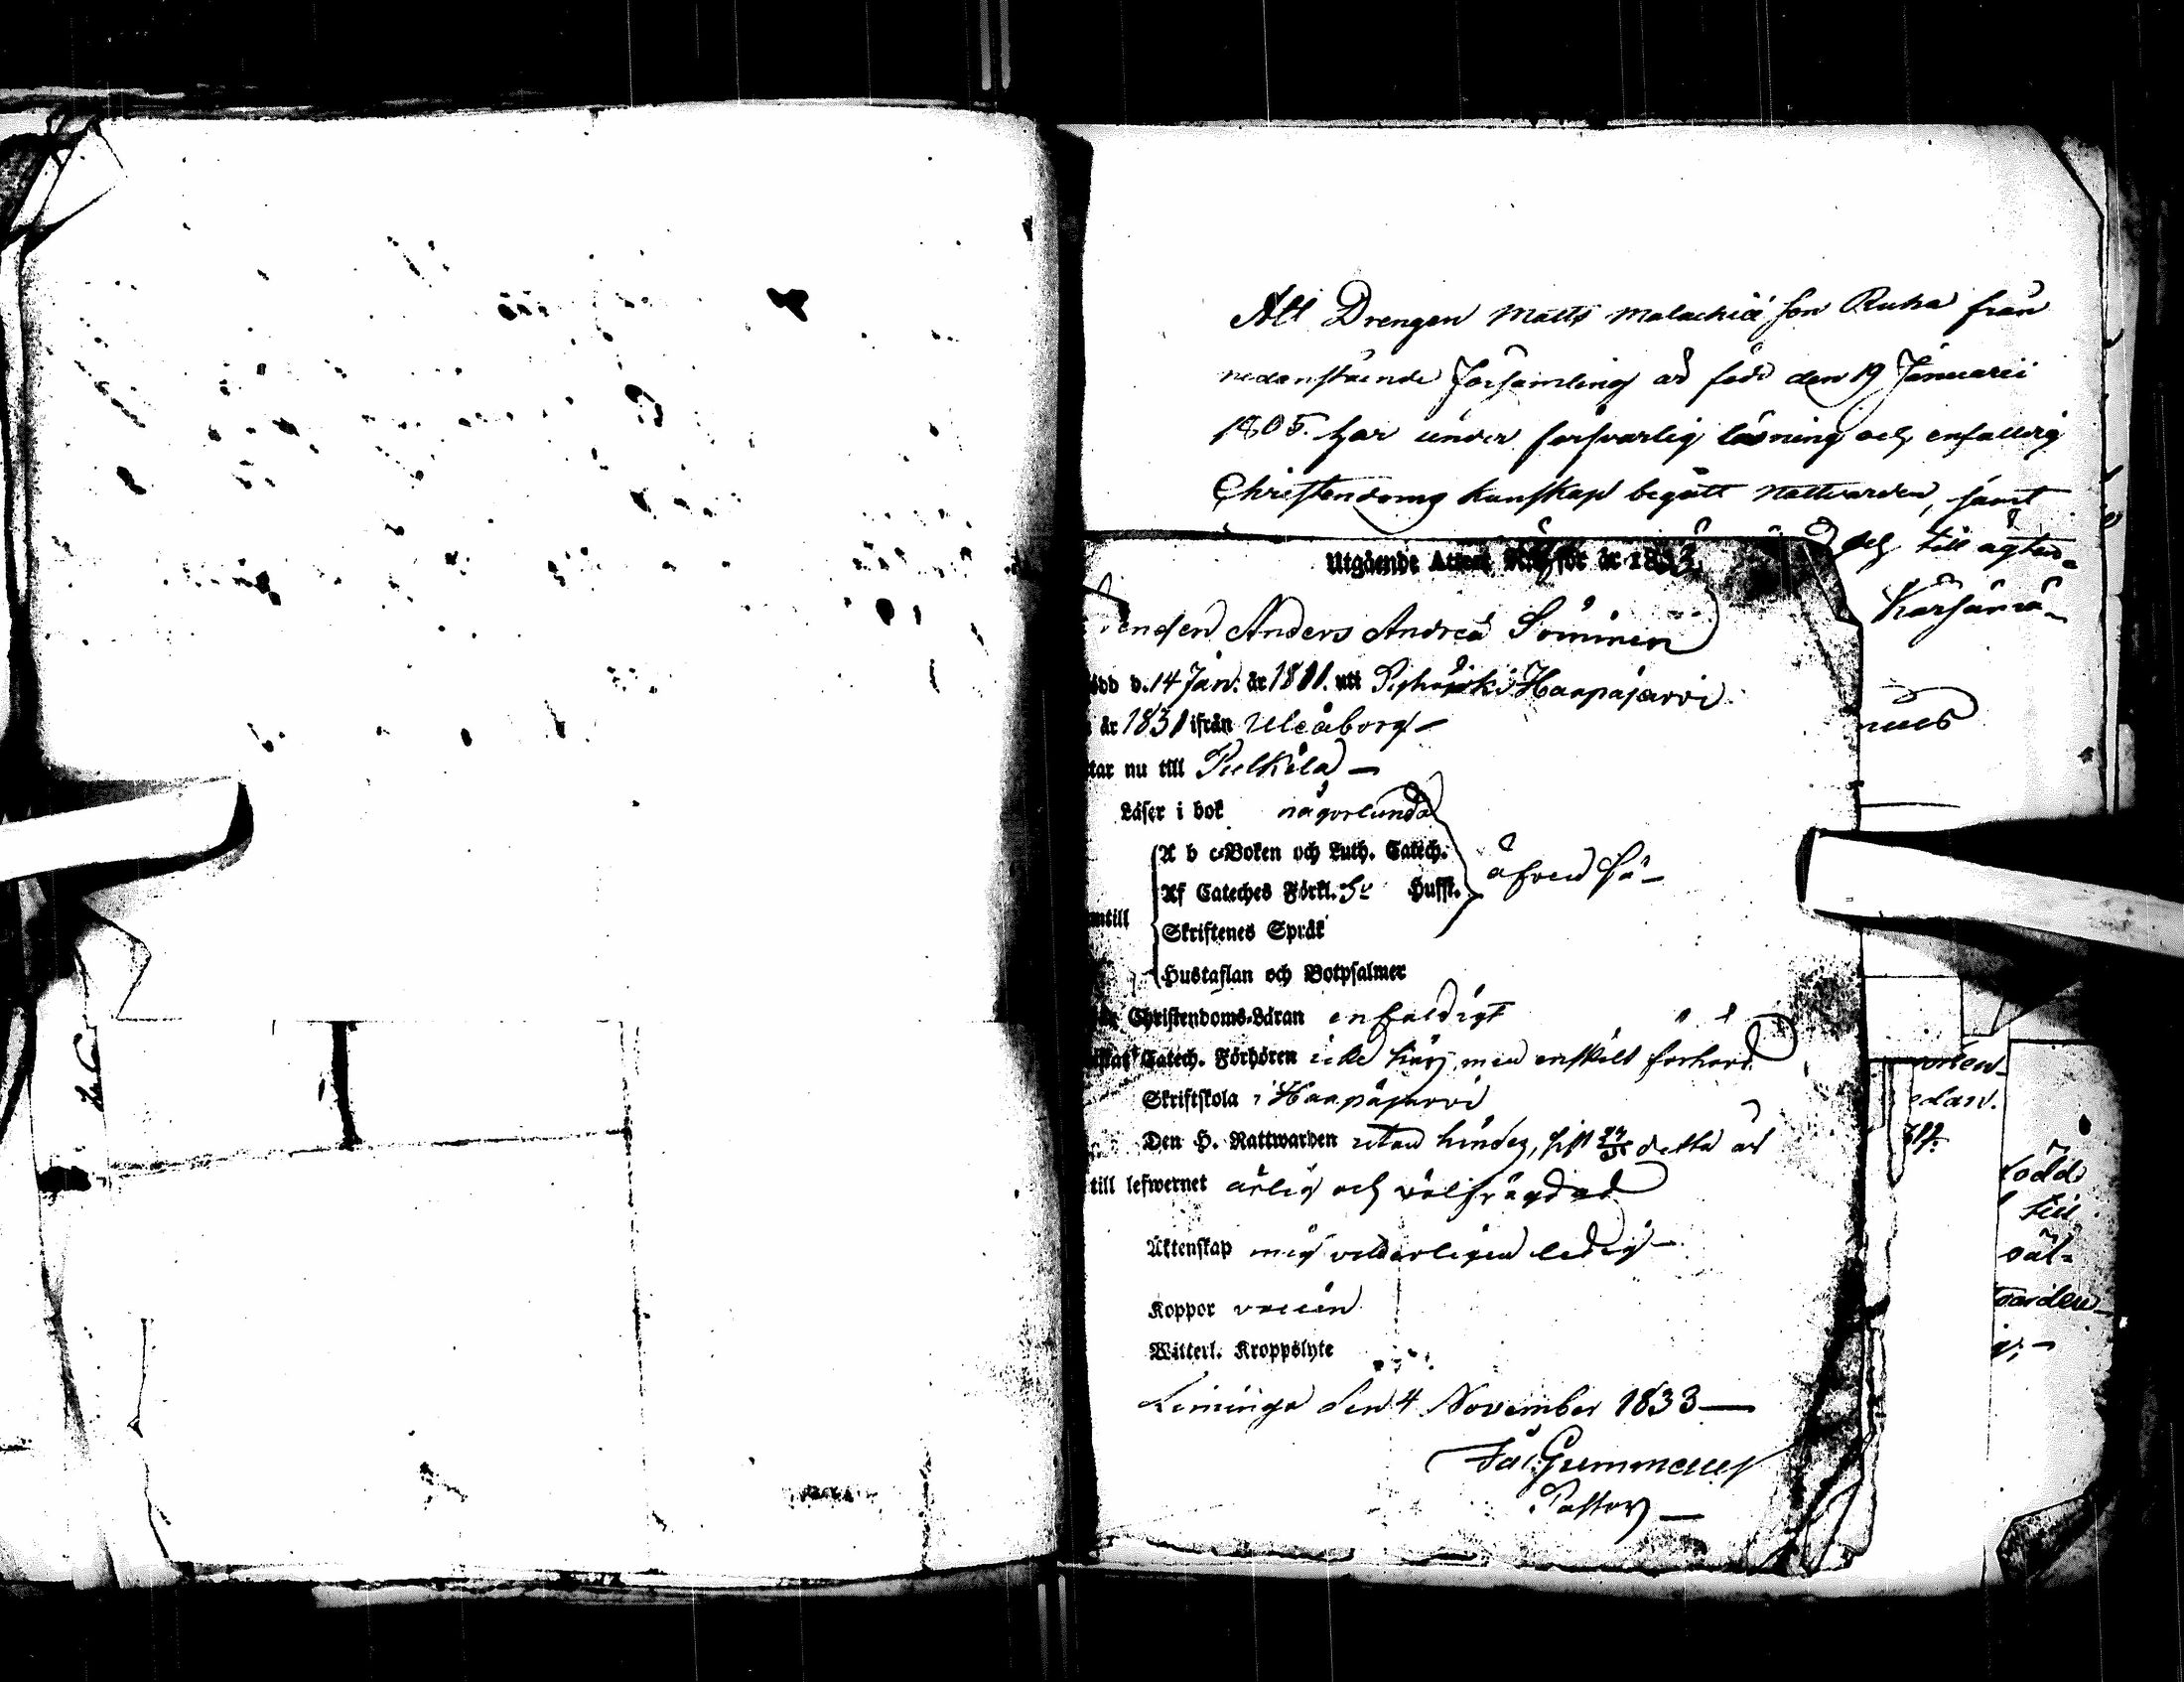 Att Drengen Matts Malachiä son Ruha från
nedanstående Församling är född den 19 Januarii
1805. har under försvarlig läsning och enfaldig
Christendoms kunskap begått Nattvarden, samt
och till ägten-
Kärsämä-
Utgående Attest för år 1833
Anders Andreä Sominen
ödd d. 14 Jan: år 1811. uti Haapajärvi
år 1831 ifrån Uleåborg
tar nu till Pulkila
Läser i bok någorlunda
A b c-Boken och Luth. Catech.
Af Cateches Förkl. Sv Hussf. äfven så
Skriftenes Språk
Hustaflan och Botpsalmer
Christendoms-Läran enfaldigt
Catech. Förhören icke här, men enskilt förhörd
Skriftskola i Haapajärvi
Den H. Nattwarden utan hinder, sist detta år
till lefwernet ärlig och välfrägdad
Äktenskap mig veterligen ledig
Koppor vaccin
Witterl. Kroppslyte
Limingo den 4 November 1833
Gummerus
Pastor
född
till
väl-